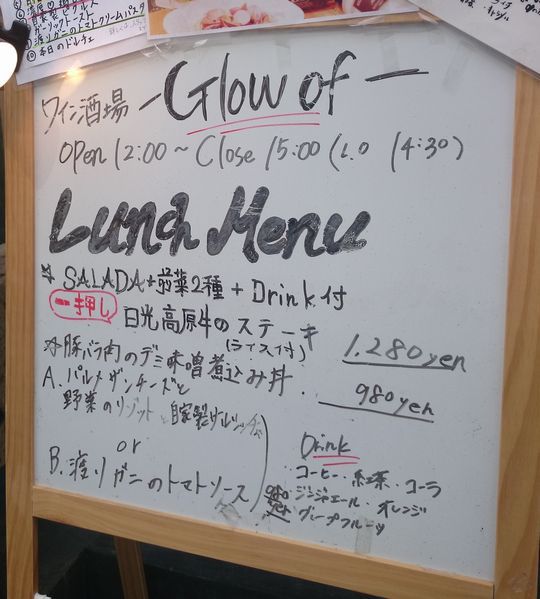 ガーリックトースト
渡りガニのトマトクリームパスタ
⑩本日のドルチェ
ワイン酒場 -Glow of-
open 12:00~Close 15:00 (L.O 14:30)
Lunch Menu
* SALADA+前菜2種+Drink付
一押し 日光高原牛のステーキ
(ライス付) 1.280yen
豚バラ肉のデミ味噌煮込み丼
980yen
A. パルメザンチーズと
野菜のリゾットと自家製
or
B. 渡りガニのトマトソース
Drink
・コーヒー・紅茶・コーラ
ジンジャエール・オレンジ
グレープフルーツ